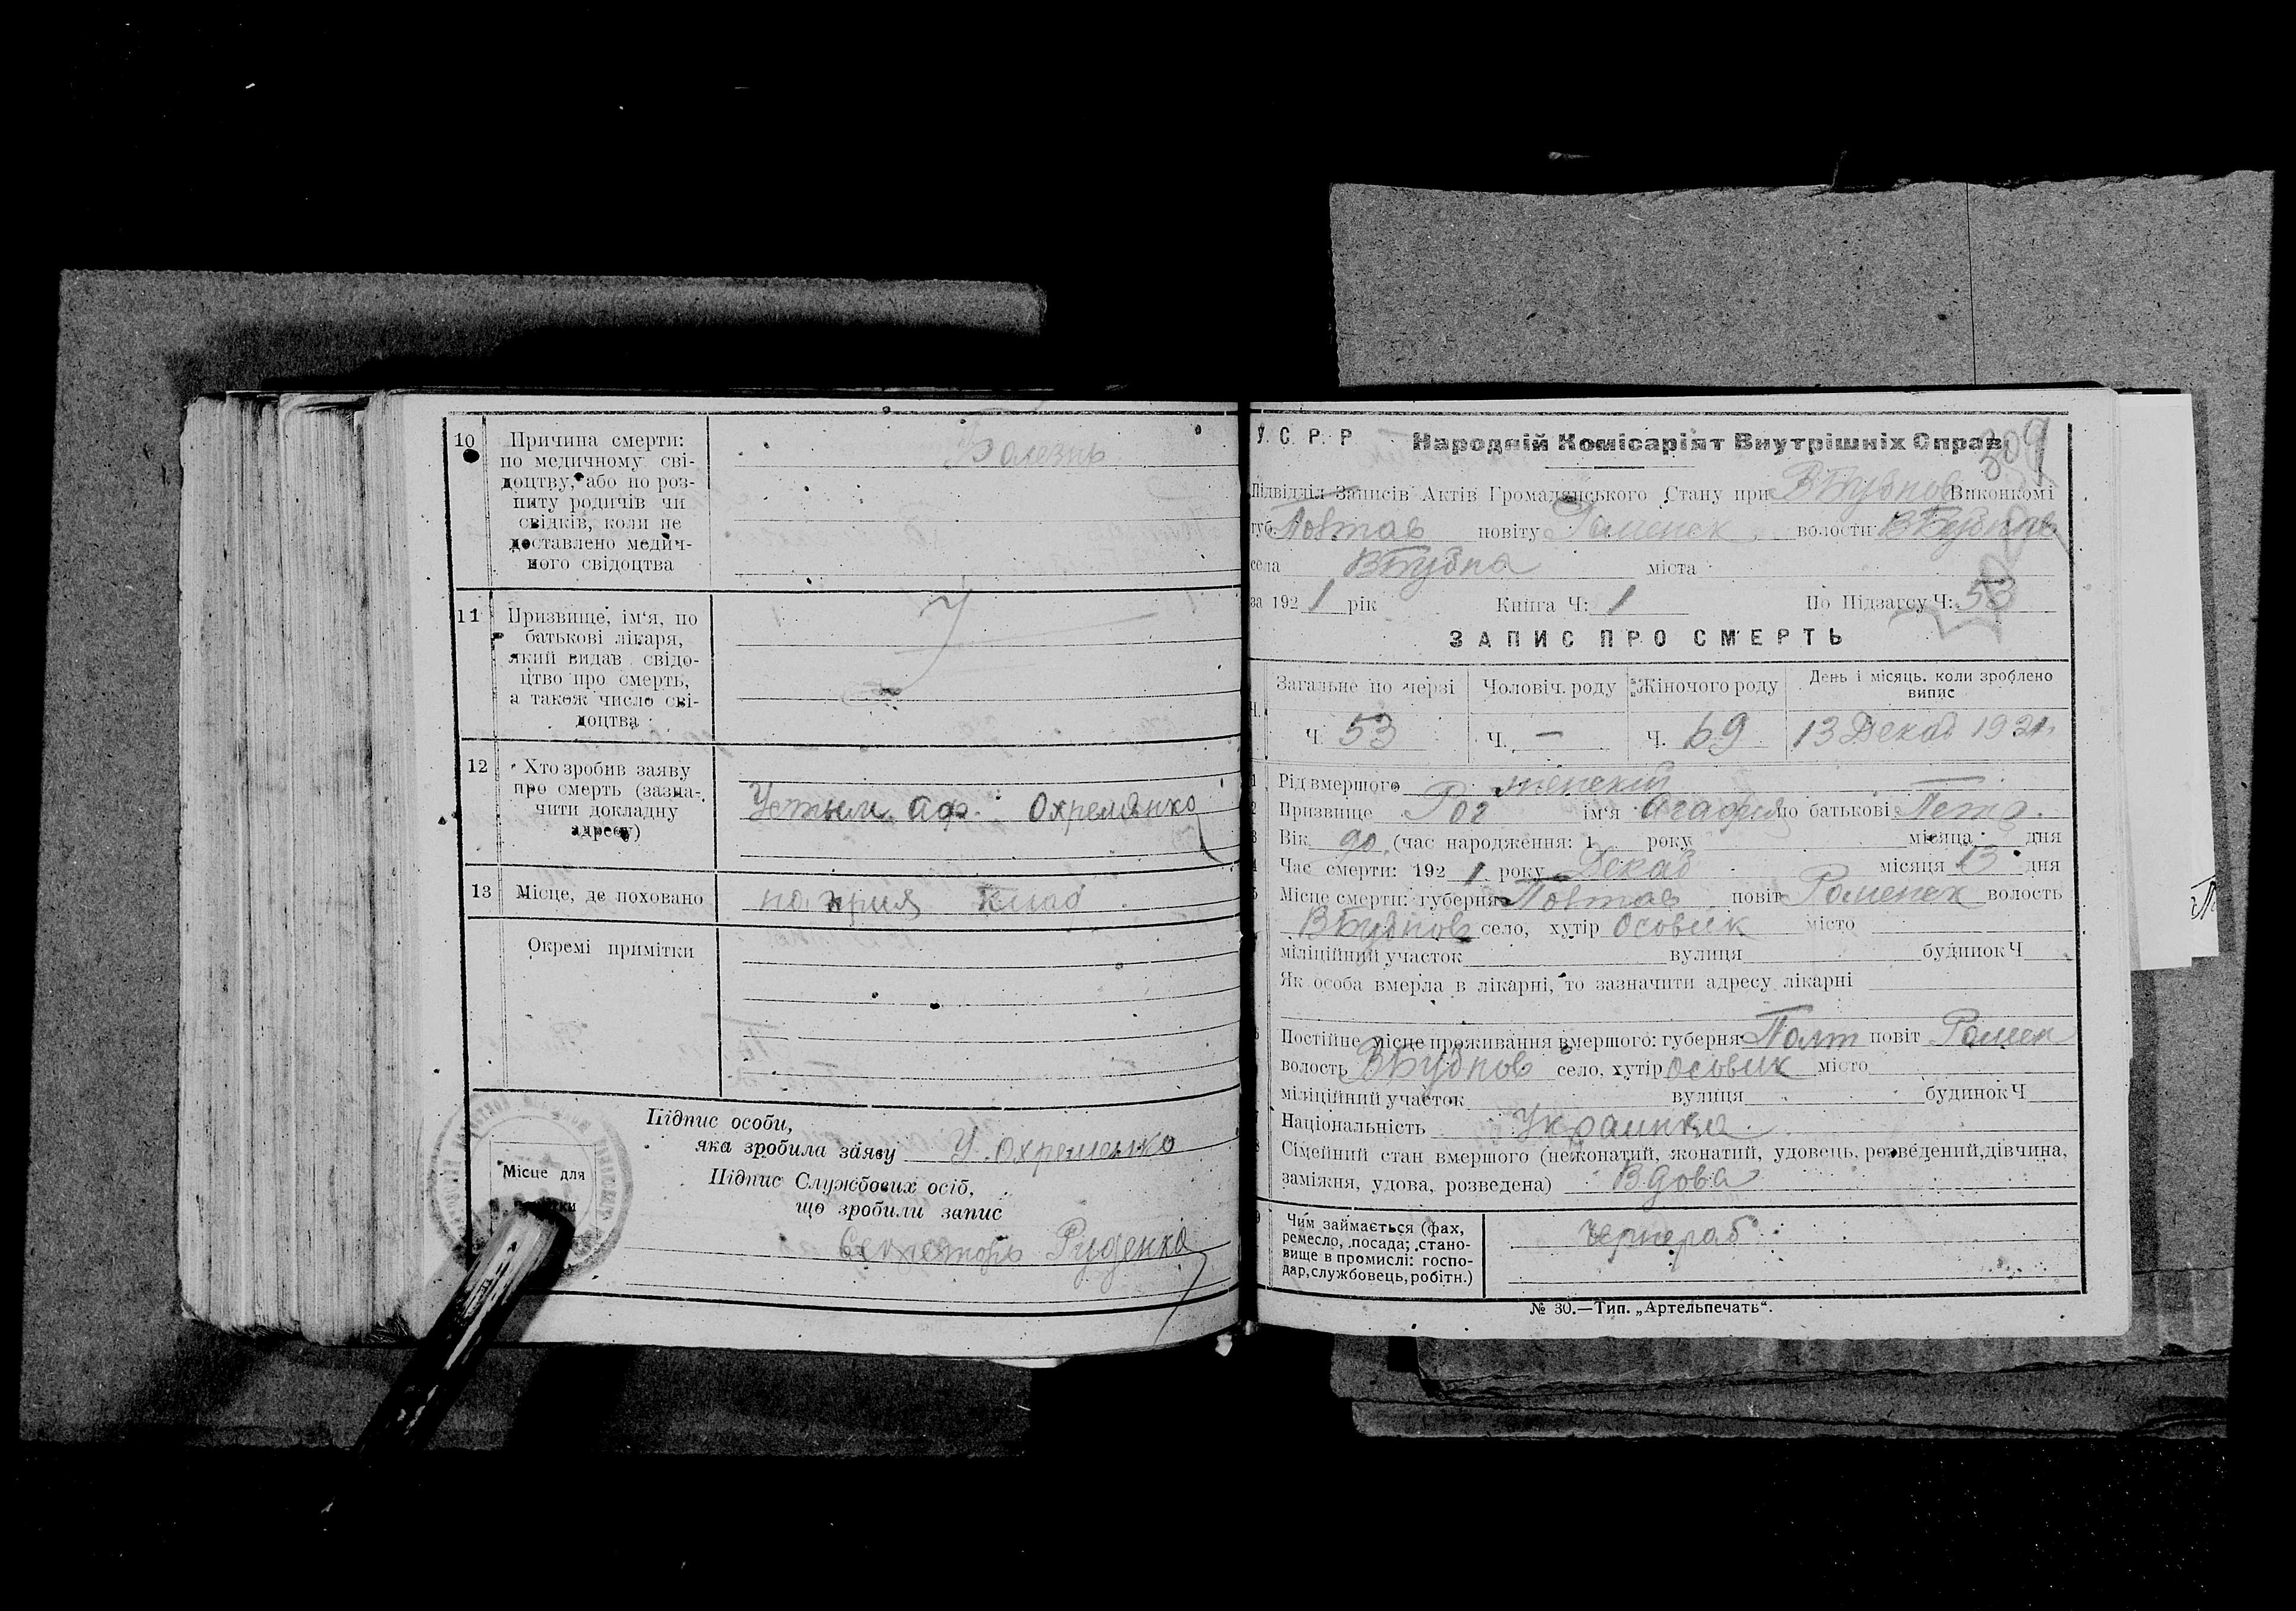 10 Причина смерти:
по медичному сві-
доцтву, або по роз-
питу родичів чи
свідків, коли не
доставлено медич-
ного свідоцтва
Болезнь
11 Призвище, ім'я, по
батькові лікаря,
який видав свідо-
цтво про смерть,
а також число сві-
доцтва
12 Хто зробив заяву
про смерть (зазна-
чити докладну
адресу)
Устым Аф. Охременко
13 Місце, де поховано
Окремі примітки
Підпис особи,
яка зробила заяву У. Охременко
Підпис Службових осіб,
що зробили запис
Руденко
Місце для
У. С. Р. Р Народній Комісаріят Внутрішніх Справ
309
Підвідділ Записів Актів Громадянського Стану при ВБубнов Виконкомі
губ. Повтав повіту Роменск волости ВБубнов
села ВБубна міста
за 1921 рік Книга Ч: 1 По Підзагсу Ч: 53
ЗАПИС ПРО СМЕРТЬ
Загальне по черзі Чоловіч. роду Жіночого роду День і місяць. коли зроблено
випис
Ч. 53 Ч. — Ч. 69 13 Декаб 1921.
1 Рід вмершого женскій
2 Призвище Рог ім'я Агафия по батькові Петр.
3 Вік 90 (час народження: 1 року місяця дня
4 Час смерти: 1921 року Декаб місяця 13 дня
5 Місце смерти: губерня Повтав повіт Роменск волость
ВБубнов село, хутір Осовик місто
міліційний участок вулиця будинок Ч
Як особа вмерла в лікарні, то зазначити адресу лікарні
6 Постійне місце проживання вмершого: губерня Полт повіт Ромен
волость ВБубнов село, хутір Осовик місто
міліційний участок вулиця будинок Ч
7 Національність Украинка
8 Сімейний стан вмершого (нежонатий, жонатий, удовець, розведений, дівчина,
заміжня, удова, розведена) Вдова
9 Чим займається (фах,
ремесло, посада; стано-
вище в промислі: госпо-
дар, службовець, робітн.)
Чернораб
№ 30.—Тип. „Артельпечать“.